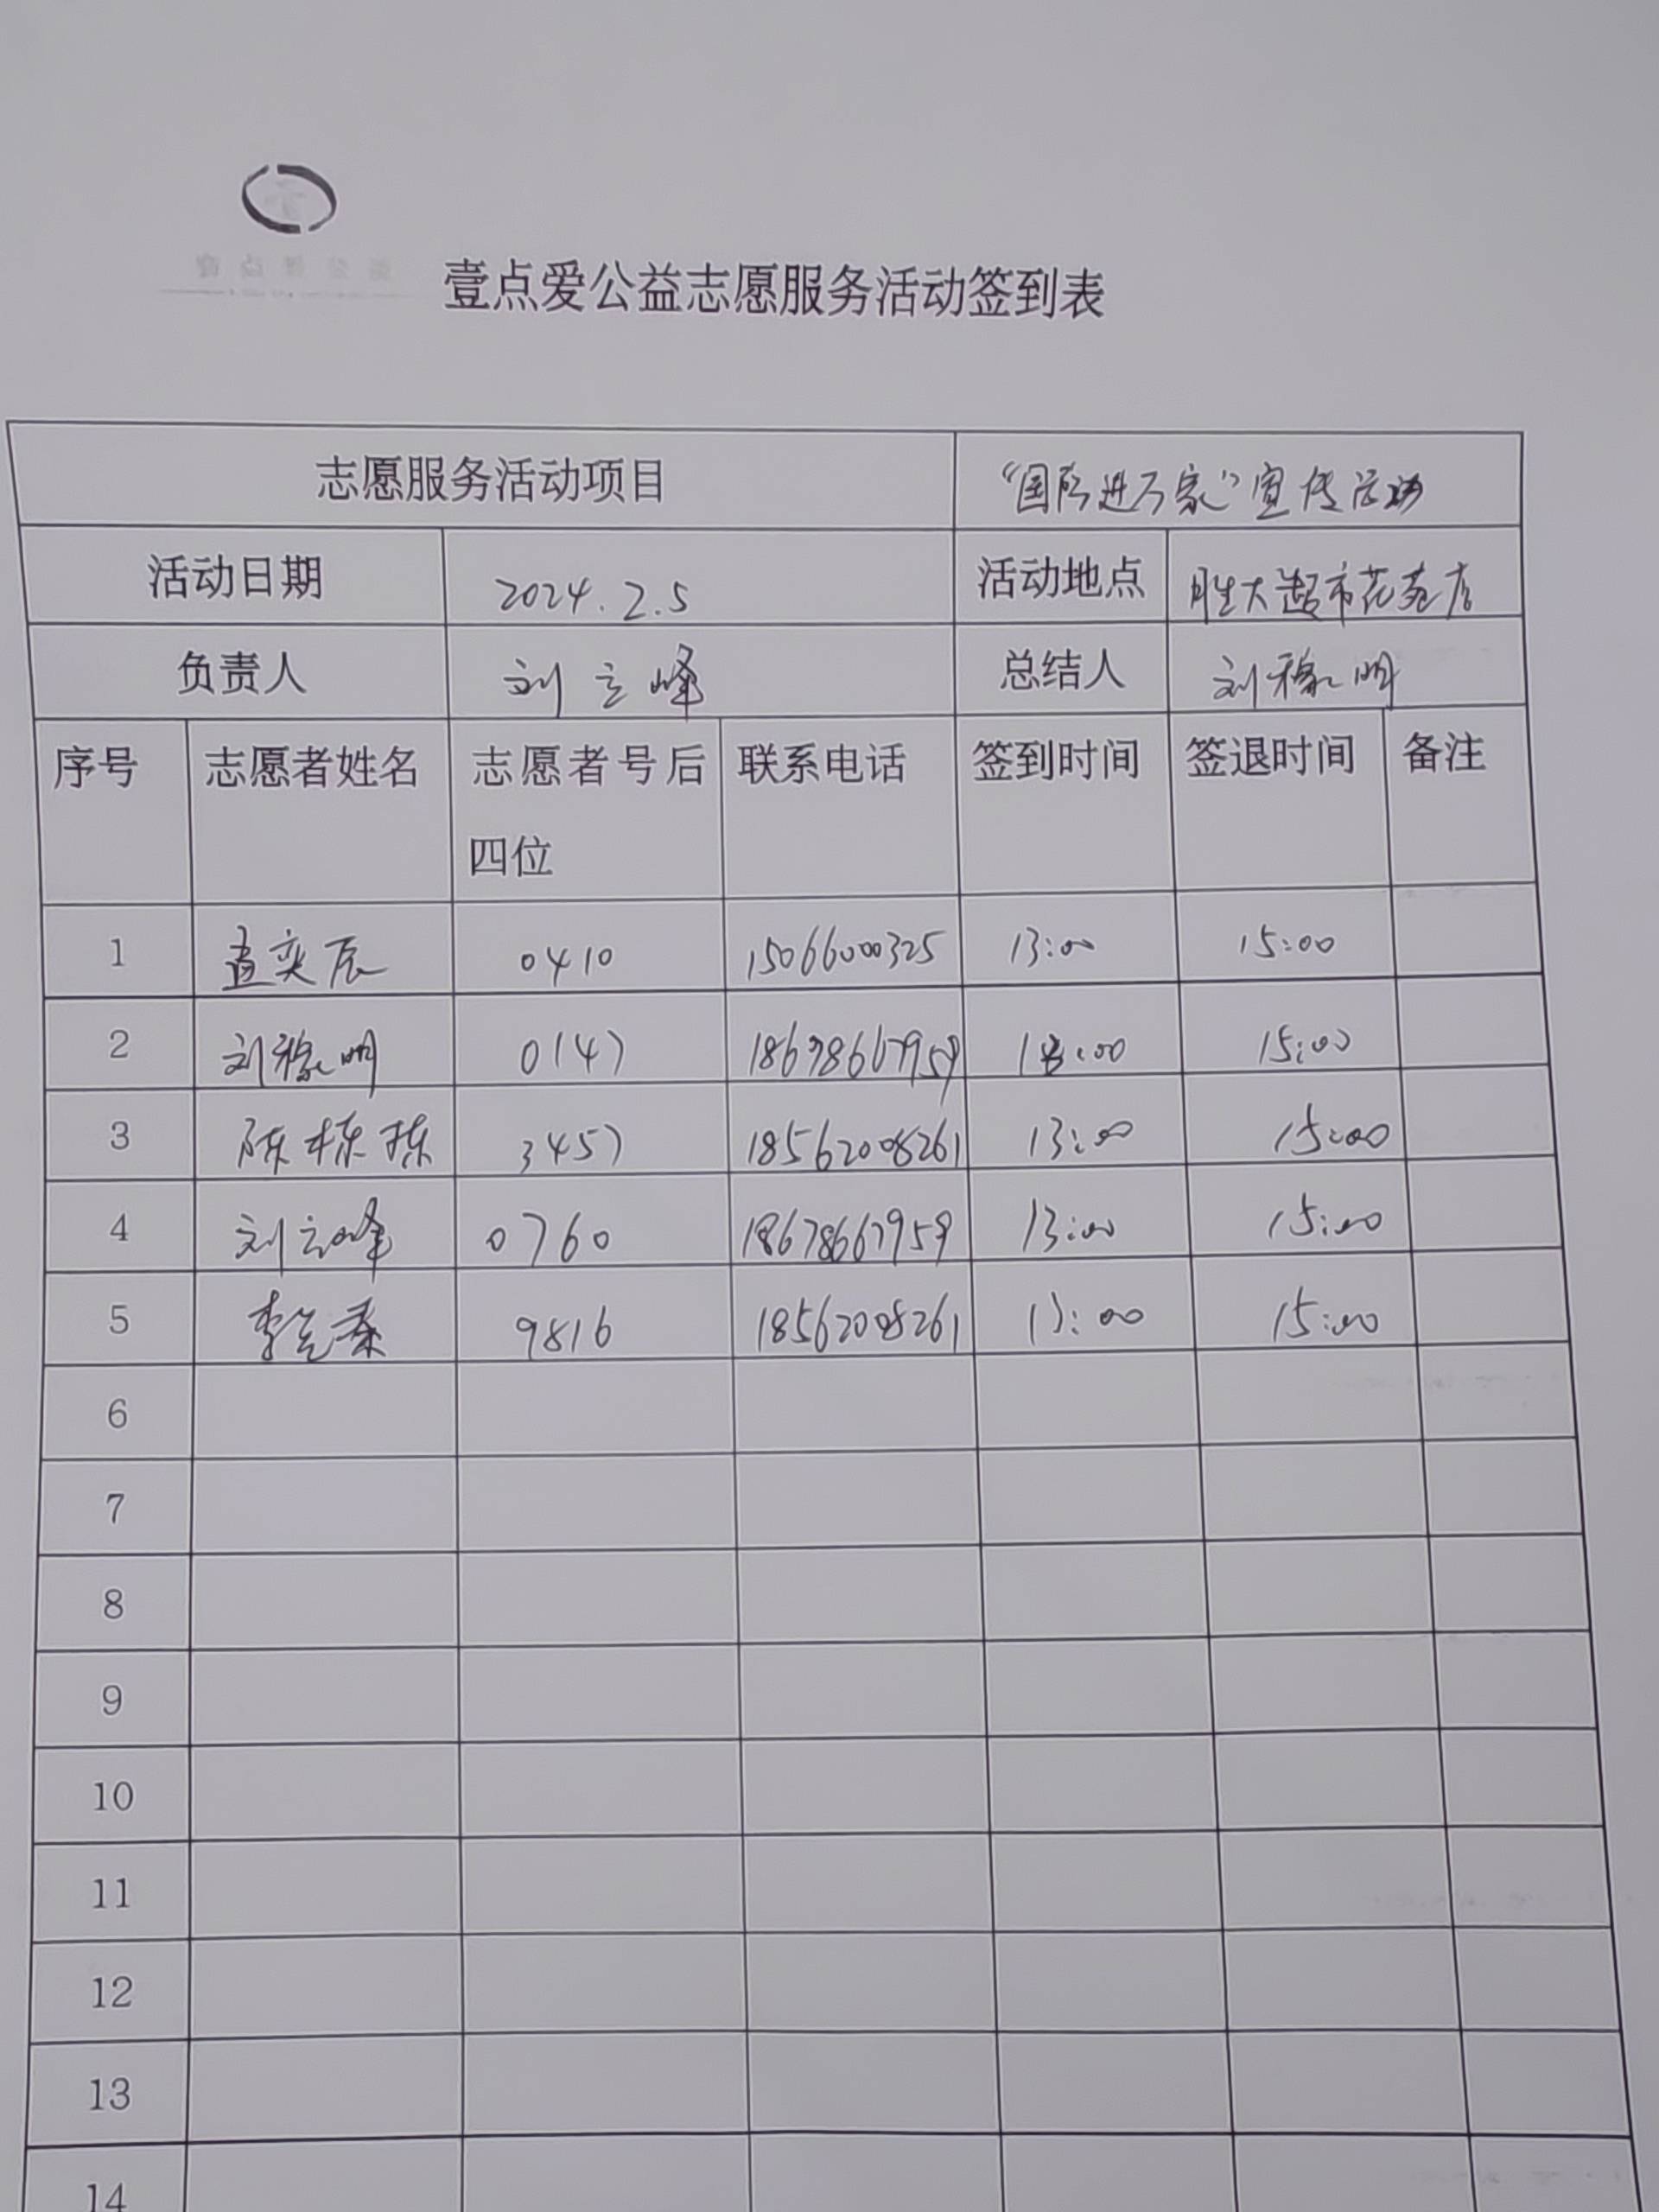 壹点爱公益志愿服务活动签到表
志愿服务活动项目 “国防进万家”宣传活动
活动日期 2024.2.5 活动地点 胜大超市花苑店
负责人 刘立峰 总结人 刘稼明
序号 志愿者姓名 志愿者号后 联系电话 签到时间 签退时间 备注
四位
1 孟奕辰 0410 15066000325 13:00 15:00
2 刘稼明 0147 18678667959 13:00 15:00
3 陈栋栋 3457 18562008261 13:00 15:00
4 刘立峰 0760 18678667959 13:00 15:00
5 李 9816 18562008261 13:00 15:00
6
7
8
9
10
11
12
13
14